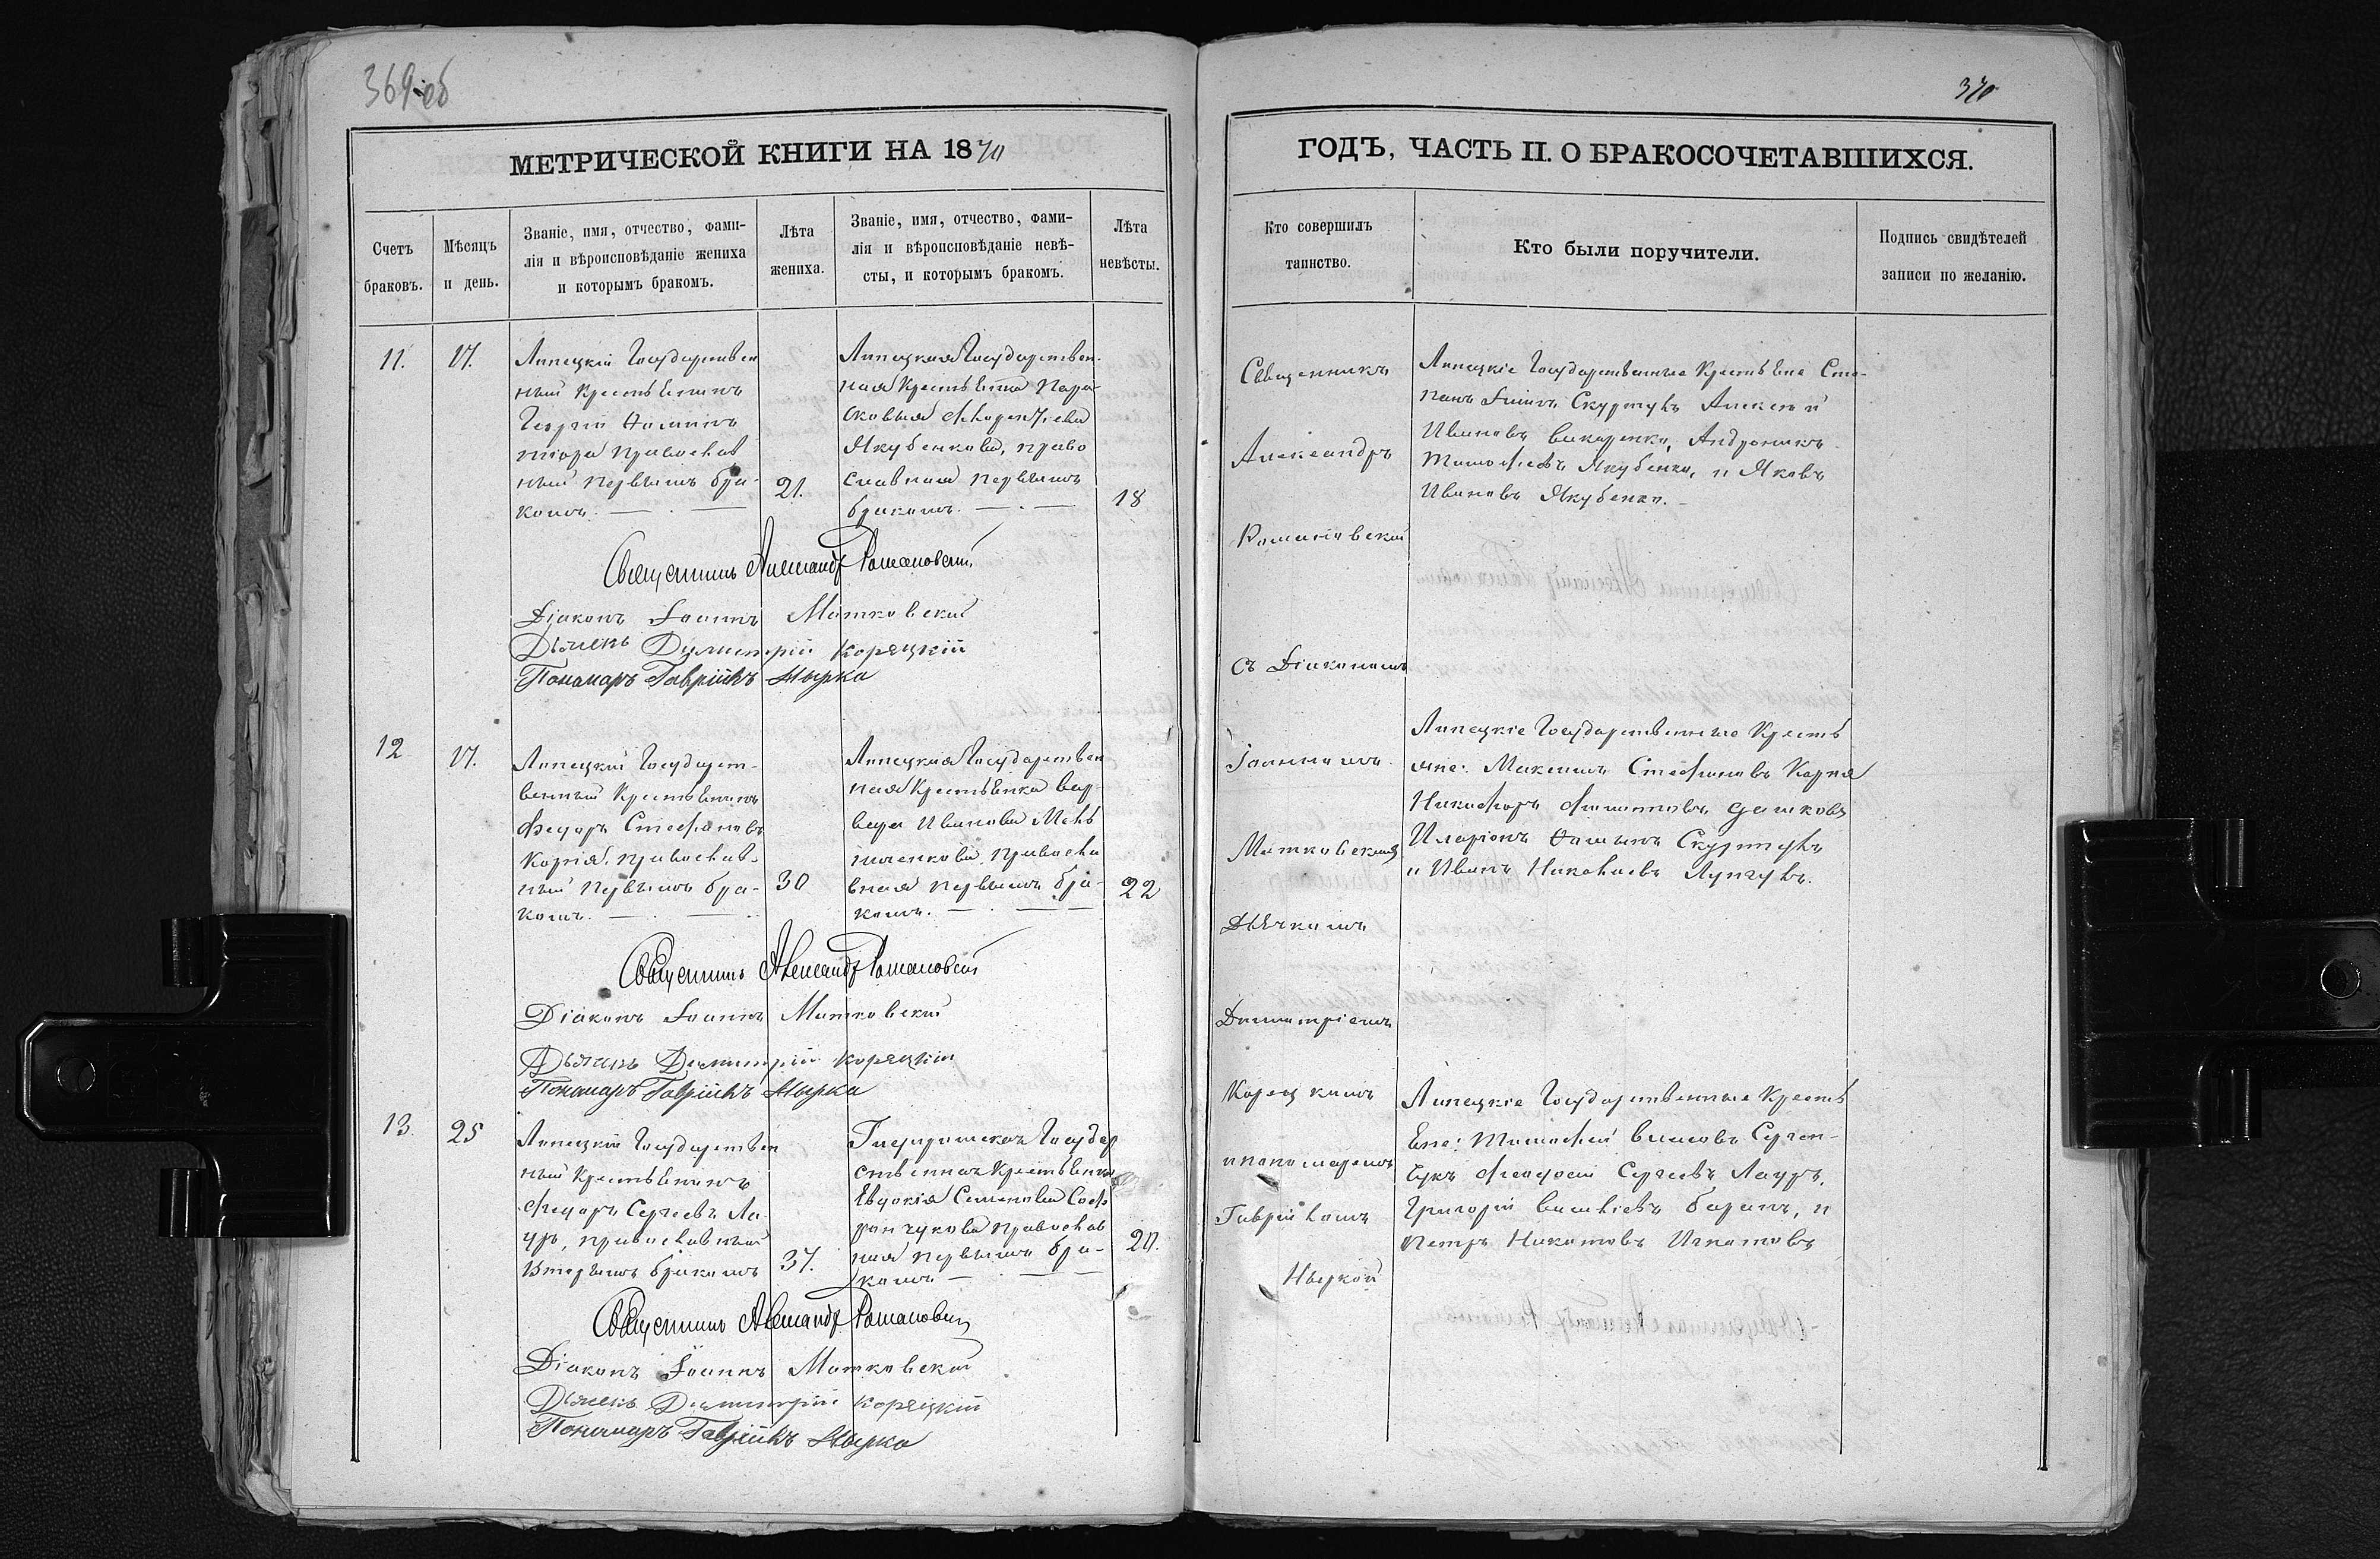 369 об
МЕТРИЧЕСКОЙ КНИГИ НА 1870
Счетъ
браковъ.
Мѣсяцъ
и день.
Званіе, имя, отчество, фами-
лія и вѣроисповѣданіе жениха
и которымъ бракомъ.
Лѣта
жениха.
Званіе, имя, отчество, фами-
лія и вѣроисповѣданіе невѣ-
сты, и которымъ бракомъ.
Лѣта
невѣсты.
11.
17.
Липецкій Государствен
ный Крестьянинъ
Георгій Ѳоминъ
православ
ный первымъ бра-
комъ.
21.
Липецкая Государствен-
ная Крестьянка Пара-
сковья
Якубенкова, право
славная первымъ
бракомъ.
18
Священникъ Александръ Романовскій
Діаконъ Іоаннъ Матковскій
Дьячекъ Димитрій Корецкій
Пономарь Гавріилъ Нырка
12
17.
Липецкій Государст-
венный Крестьянинъ
Федоръ Стефановъ
Корня, православ-
ный первымъ бра-
комъ.
30
Липецкая Государствен
ная Крестьянка Вар-
вара Иванова Мель
ниченкова, Правосла
вная первымъ бра-
комъ.
22
Священникъ Александръ Романовскій
Діаконъ Іоаннъ Матковскій
Дьячекъ Димитрій Корецкій
Пономарь Гавріилъ Нырка
13.
25
Липецкій Государствен
ный Крестьянинъ
Федоръ Сергеевъ Ла-
уръ, православный
вторымъ бракомъ
37.
Государ
ственная Крестьянка
Евдокія Семенова Соф
рончукова Православ
ная первымъ бра-
комъ
20.
Священникъ Александръ Романовскій
Діаконъ Іоаннъ Матковскій
Дьячекъ Димитрій Корецкій
Пономарь Гавріилъ Нырка
370
ГОДЪ, ЧАСТЬ II. О БРАКОСОЧЕТАВШИХСЯ.
Кто совершилъ
таинство.
Кто были поручители.
Подпись свидѣтелей
записи по желанію.
Священникъ
Александръ
Романовскій
съ Діакономъ
Іоанномъ
Матковскимъ
Дьячкомъ
Димитріемъ
Корецкимъ
и пономаремъ
Гавріиломъ
Ныркой
Липецкіе Государственные Крестьяне Сте-
панъ Скуртулъ Алексѣй
Ивановъ Андроникъ
Тимофеевъ Якубенко, и Яковъ
Ивановъ Якубенко.
Липецкіе Государственные Кресть
яне: Максимъ Стефановъ Корня
Никифоръ Филиповъ
Иларіонъ Ѳоминъ Скуртулъ
и Иванъ Николаевъ Лунгулъ.
Липецкіе Государственные Кресть
яне: Тимофей Власовъ
Феодосій Сергеевъ Лауръ,
Григорій Василіевъ Баранъ, и
Петръ Никитовъ Игнатовъ